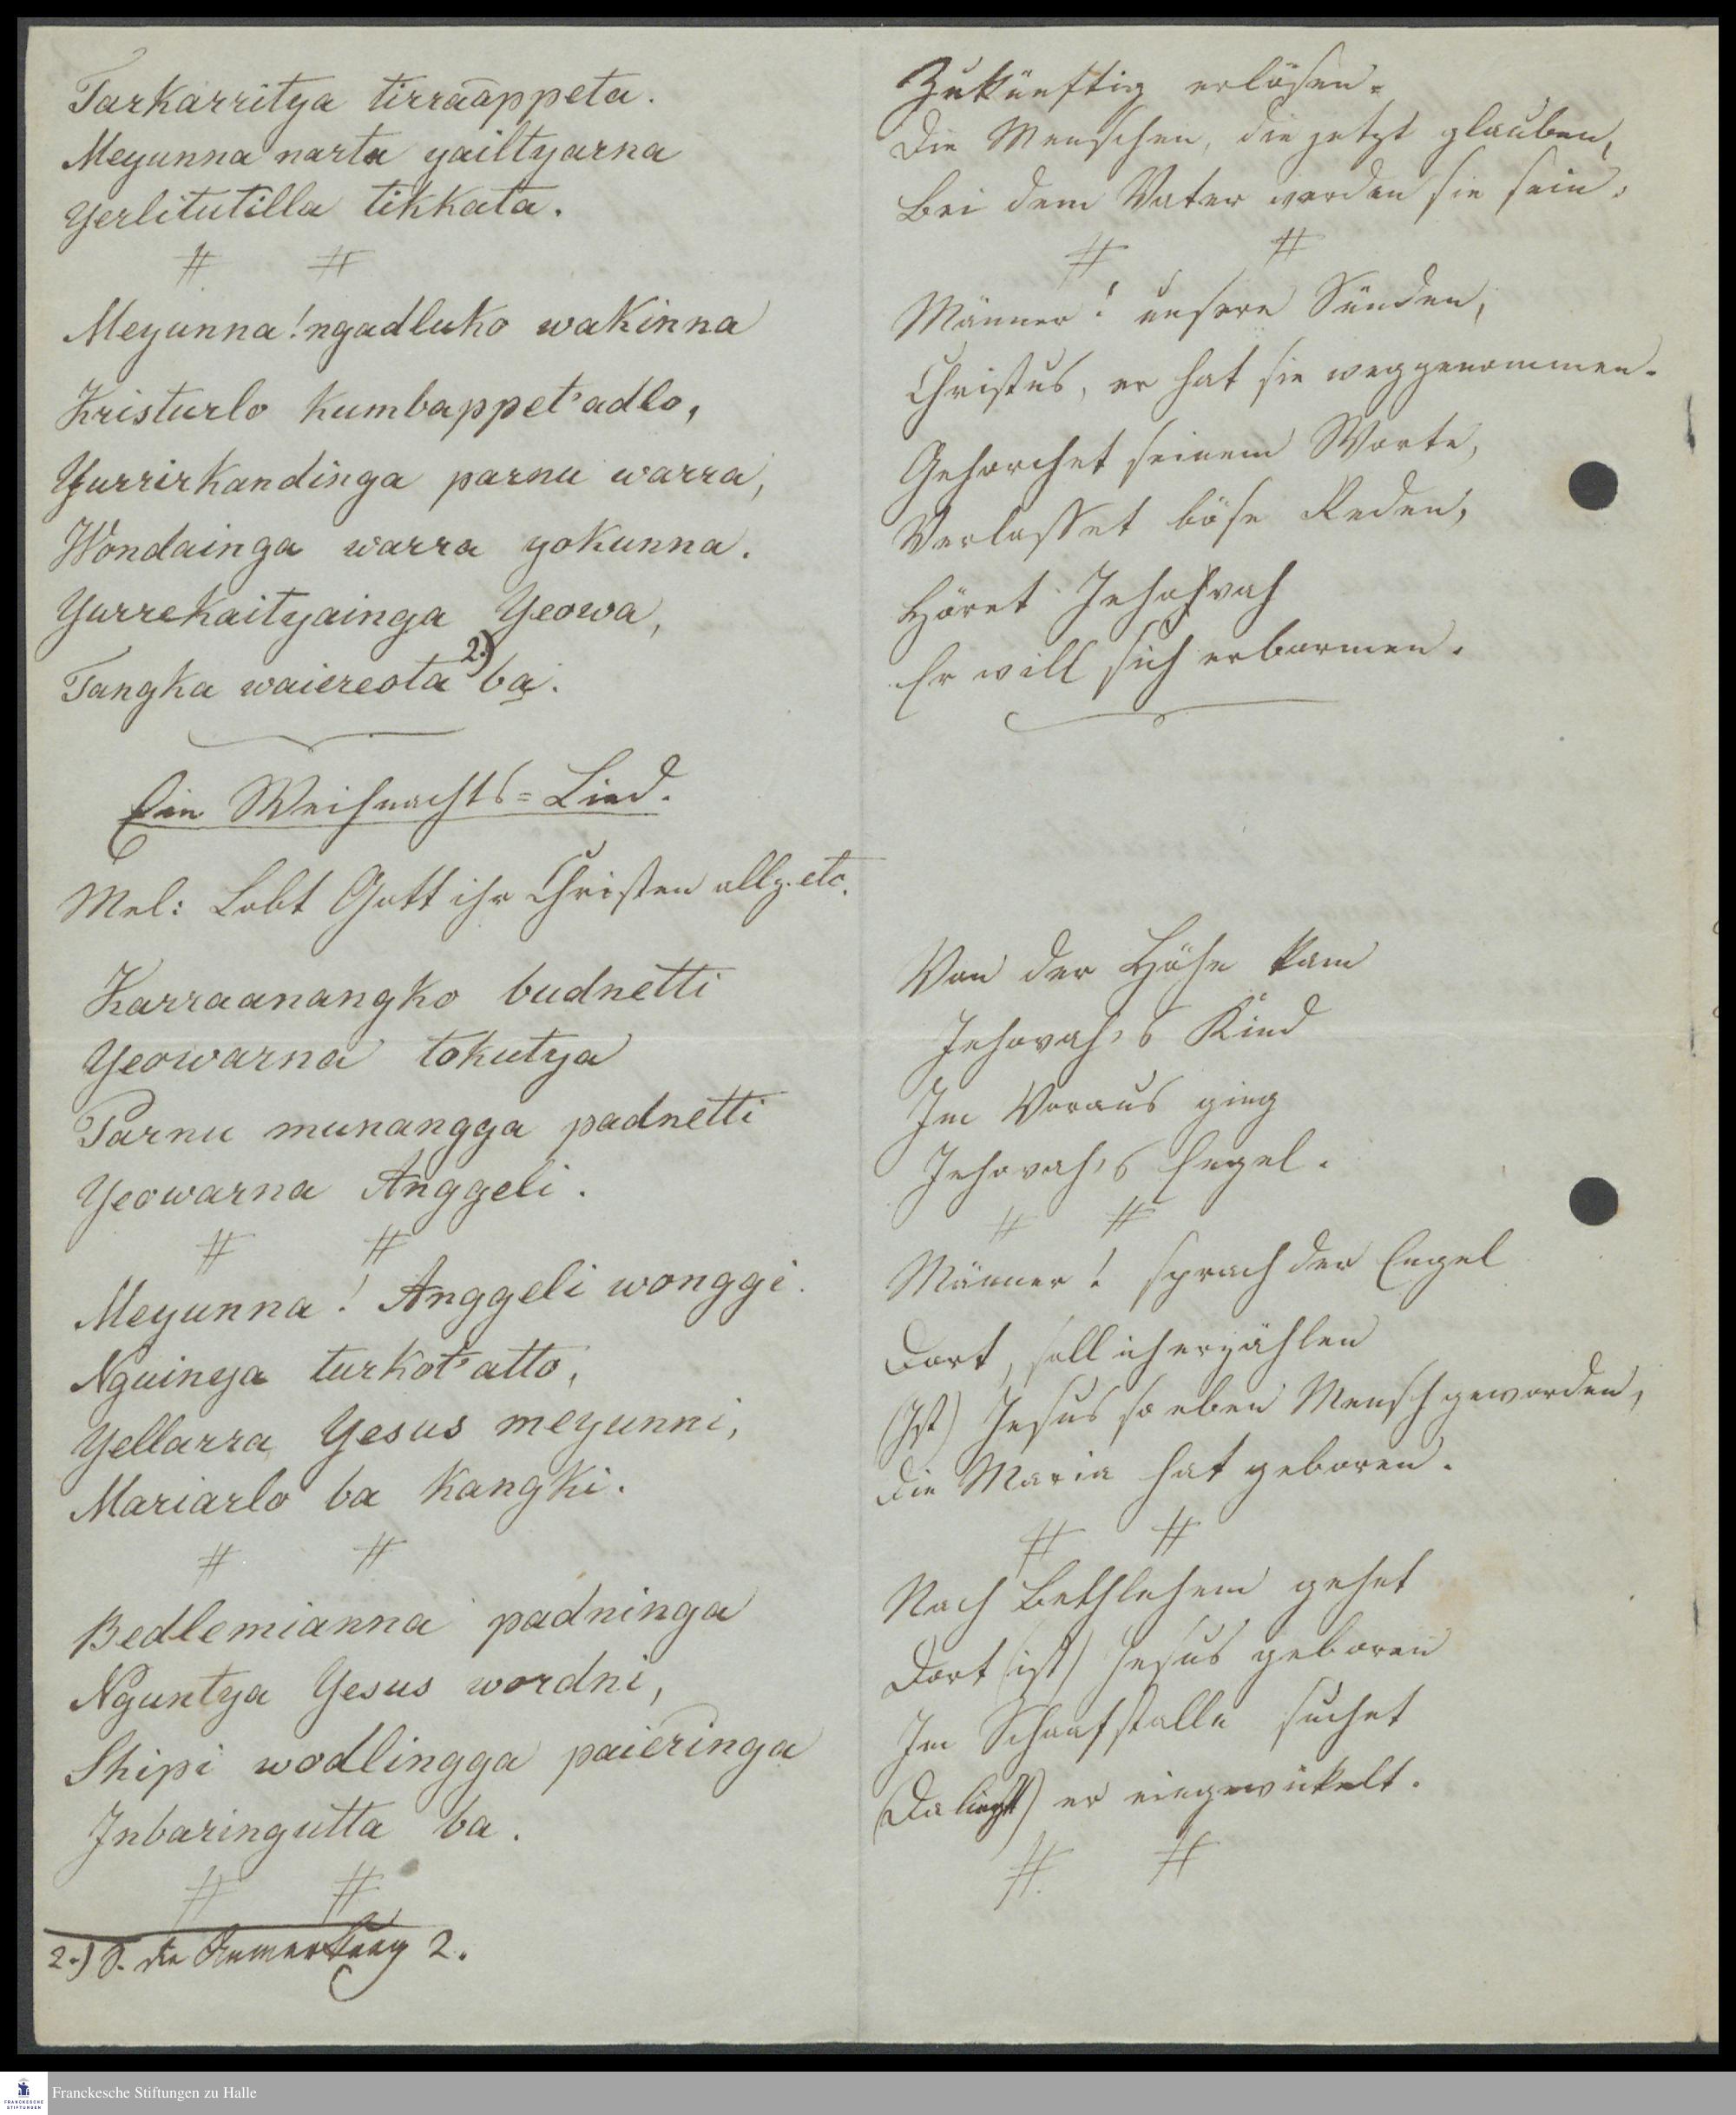 Tarkarritya tirraappeta.
Meyunna narta yailtyarna
Yerlitutilla tikkata.
# #
Meyunna! ngadluko wakinna
Kristurlo kumbappet'adlo,
Yurrirkandinga parnu warra,
Wondainga warra yokunna.
Yurrekaityainga Yeowa,
Tangka waiereota 2.) ba.
Ein Weihnachts=Lied.
Mel: Lobt Gott ihr Christen allz. etc.
Karraanangko budnetti
Yeowarna tokutya
Parnu munangga padnetti
Yeowarna Anggeli.
# #
Meyunna! Anggeli wonggi.
Nguinya turkot'atto,
Yellarra Yesus meyunni,
Mariarlo ba kangki.
# #
Bedlemianna padninga
Nguntya Yesus wordni,
Shipi wodlingga paieringa
Inbaringutta ba.
# #
2.) S. die Anmerkung 2.
Zukünftig erlösen.
Die Menschen, die jetzt glauben,
Bei dem Vater werden sie sein.
# #
Männer! unsere Sünden,
Christus, er hat sie weggenommen.
Gehorchet seinem Worte,
Verlasset böse Reden,
Höret Jehovah
Er will sich erbarmen.
Von der Höhe kam
Jehovah's Kind
Im Voraus ging
Jehovah's Engel.
# #
Männer! sprach der Engel
Dort, soll ich erzählen
(Ist) Jesus so eben Mensch geworden,
Die Maria hat geboren.
# #
Nach Bethlehem gehet
Dort (ist) Jesus geboren
Im Schaafstalle suchet
(Da liegt) er eingewickelt.
# #
FRANCKESCHE
STIFTUNGEN
Franckesche Stiftungen zu Halle